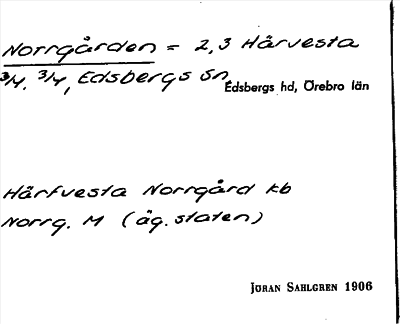 Norrgården = 2,3 Härvesta
3/4, 3/4, Edsbergs sn,
Edsbergs hd, Örebro län
Härfvesta Norrgård kb
Norrg. M (äg. staten)
JÖRAN SAHLGREN 1906